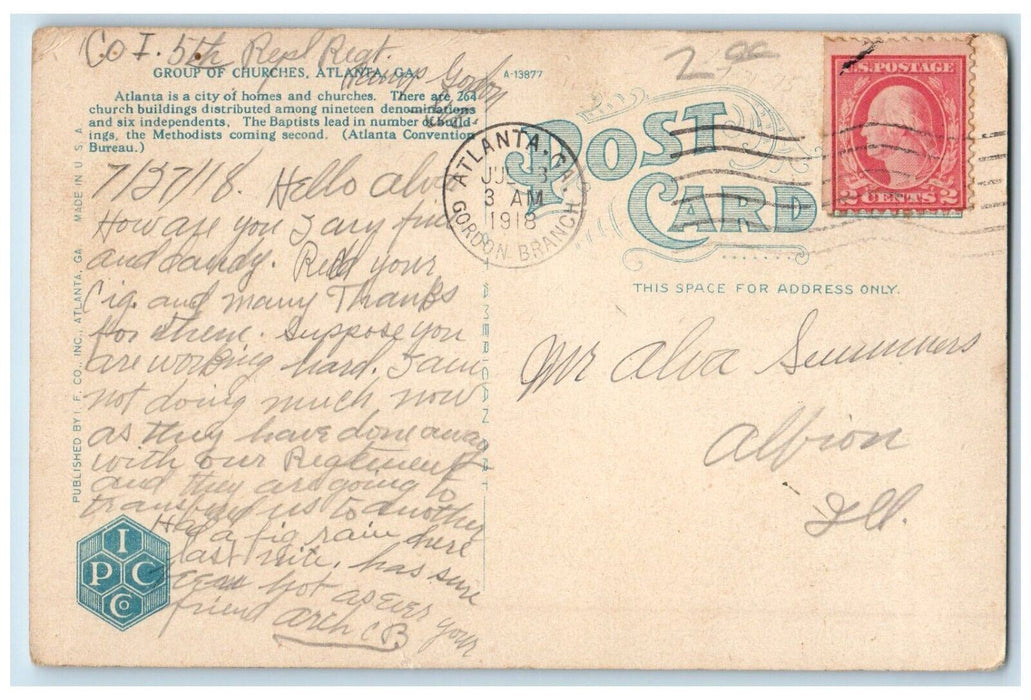 Co I. 5th Repl Regt.
Camp Gordon
2 00
GROUP OF CHURCHES, ATLANTA, GA.
A-13877
Atlanta is a city of homes and churches. There are 264
church buildings distributed among nineteen denominations
and six independents. The Baptists lead in number of build-
ings, the Methodists coming second. (Atlanta Convention
Bureau.)
7/27/18. Hello Alva
How are you I am fine
and dandy. Recd your
Cig. and many Thanks
for them. Suppose you
are working hard. I am
not doing much now
as they have done away
with our Regiment
and they are going to
transfer us to another
Had a big rain here
last nite. has sure
been hot as ever your
friend Arch C B
PUBLISHED BY I. F. CO., INC., ATLANTA, GA. MADE IN U. S. A.
I P C Co
POST CARD
ATLANTA, GA.
3 AM
1918
GORDON BRANCH
U.S. POSTAGE
2 CENTS 2
THIS SPACE FOR ADDRESS ONLY.
Mr Alva Summers
Albion
Ill.